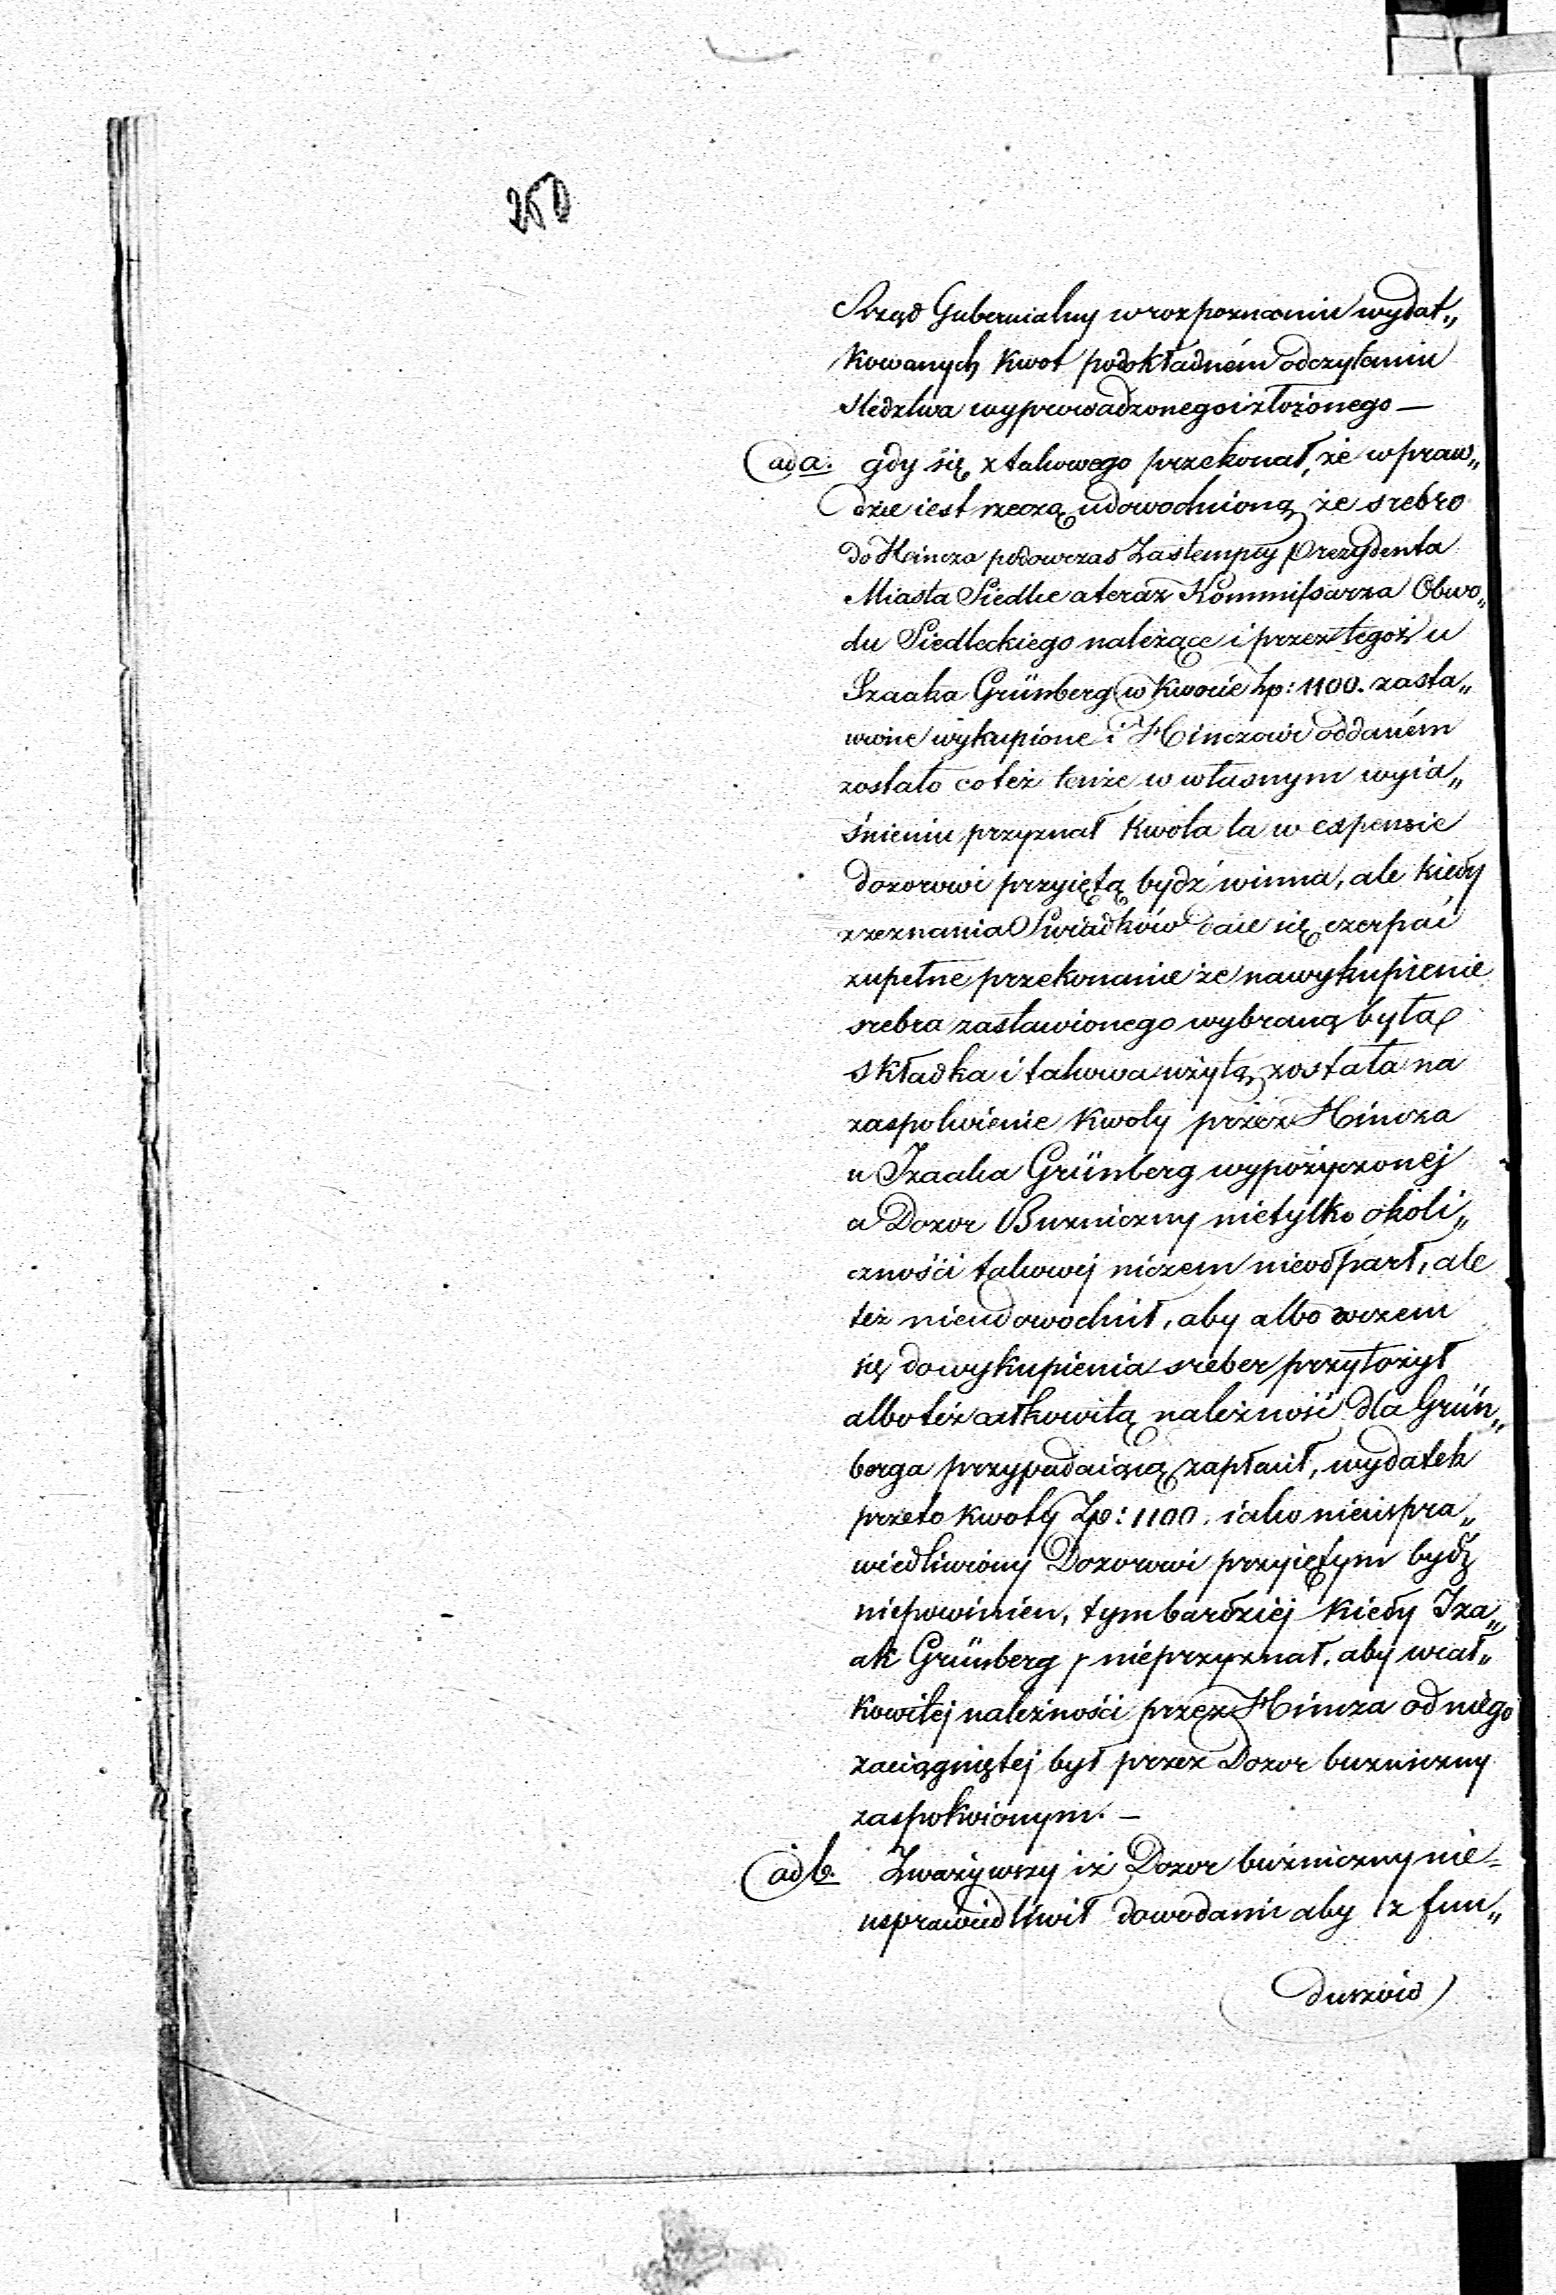 250
Rząd Gubernialny w rozpoznaniu wydat„
kowanych kwot podokładném odczytaniu
śledztwa wyprowadzonego i złożonego —
ad a. gdy się z takowego przekonał, że wpraw„
dzie iest rzeczą udowodnioną że srebro
do Hincza podowczas Zastempcy Prezydenta
Miasta Siedlce a teraz Kommissarza Obwo„
du Siedleckiego należące i przez tegoż u
Izaaka Grünberg w kwocie Zp: 1100. zasta„
wione wykupione i Hinczowi oddaném
zostało co też tenże w własnym wyia„
śnieniu przyznał kwota ta w expensie
dozorowi przyiętą bydź winna, ale kiedy
z zeznania Swiadków daie się czerpać
zupełne przekonanie że na wykupienie
srebra zastawionego wybraną była
składka i takowa użytą została na
zaspokoienie kwoty przez Hincza
u Izaaka Grünberg wypożyczonej
a Dozor Bużniczny nietylko okoli„
czności takowej niczem nieodparł, ale
też nieudowodnił, aby albo wczem
się do wykupienia sreber przyłożył
albo też całkowitą należność dla Grün„
berga przypadaiącą zapłacił, wydatek
przeto kwoty Zp: 1100. iako nieuspra„
wiedliwiony Dozorowi przyiętym bydź
niepowinien, tymbardziej kiedy Iza„
ak Grünberg nieprzyznał, aby w cał„
kowitej należności przez Hincza od niego
zaciągniętej był przez Dozor bużniczny
zaspokoionym. —
ad b. Zważywszy iż Dozor bużniczny nie=
usprawiedliwił dowodami aby z fun„
duszów